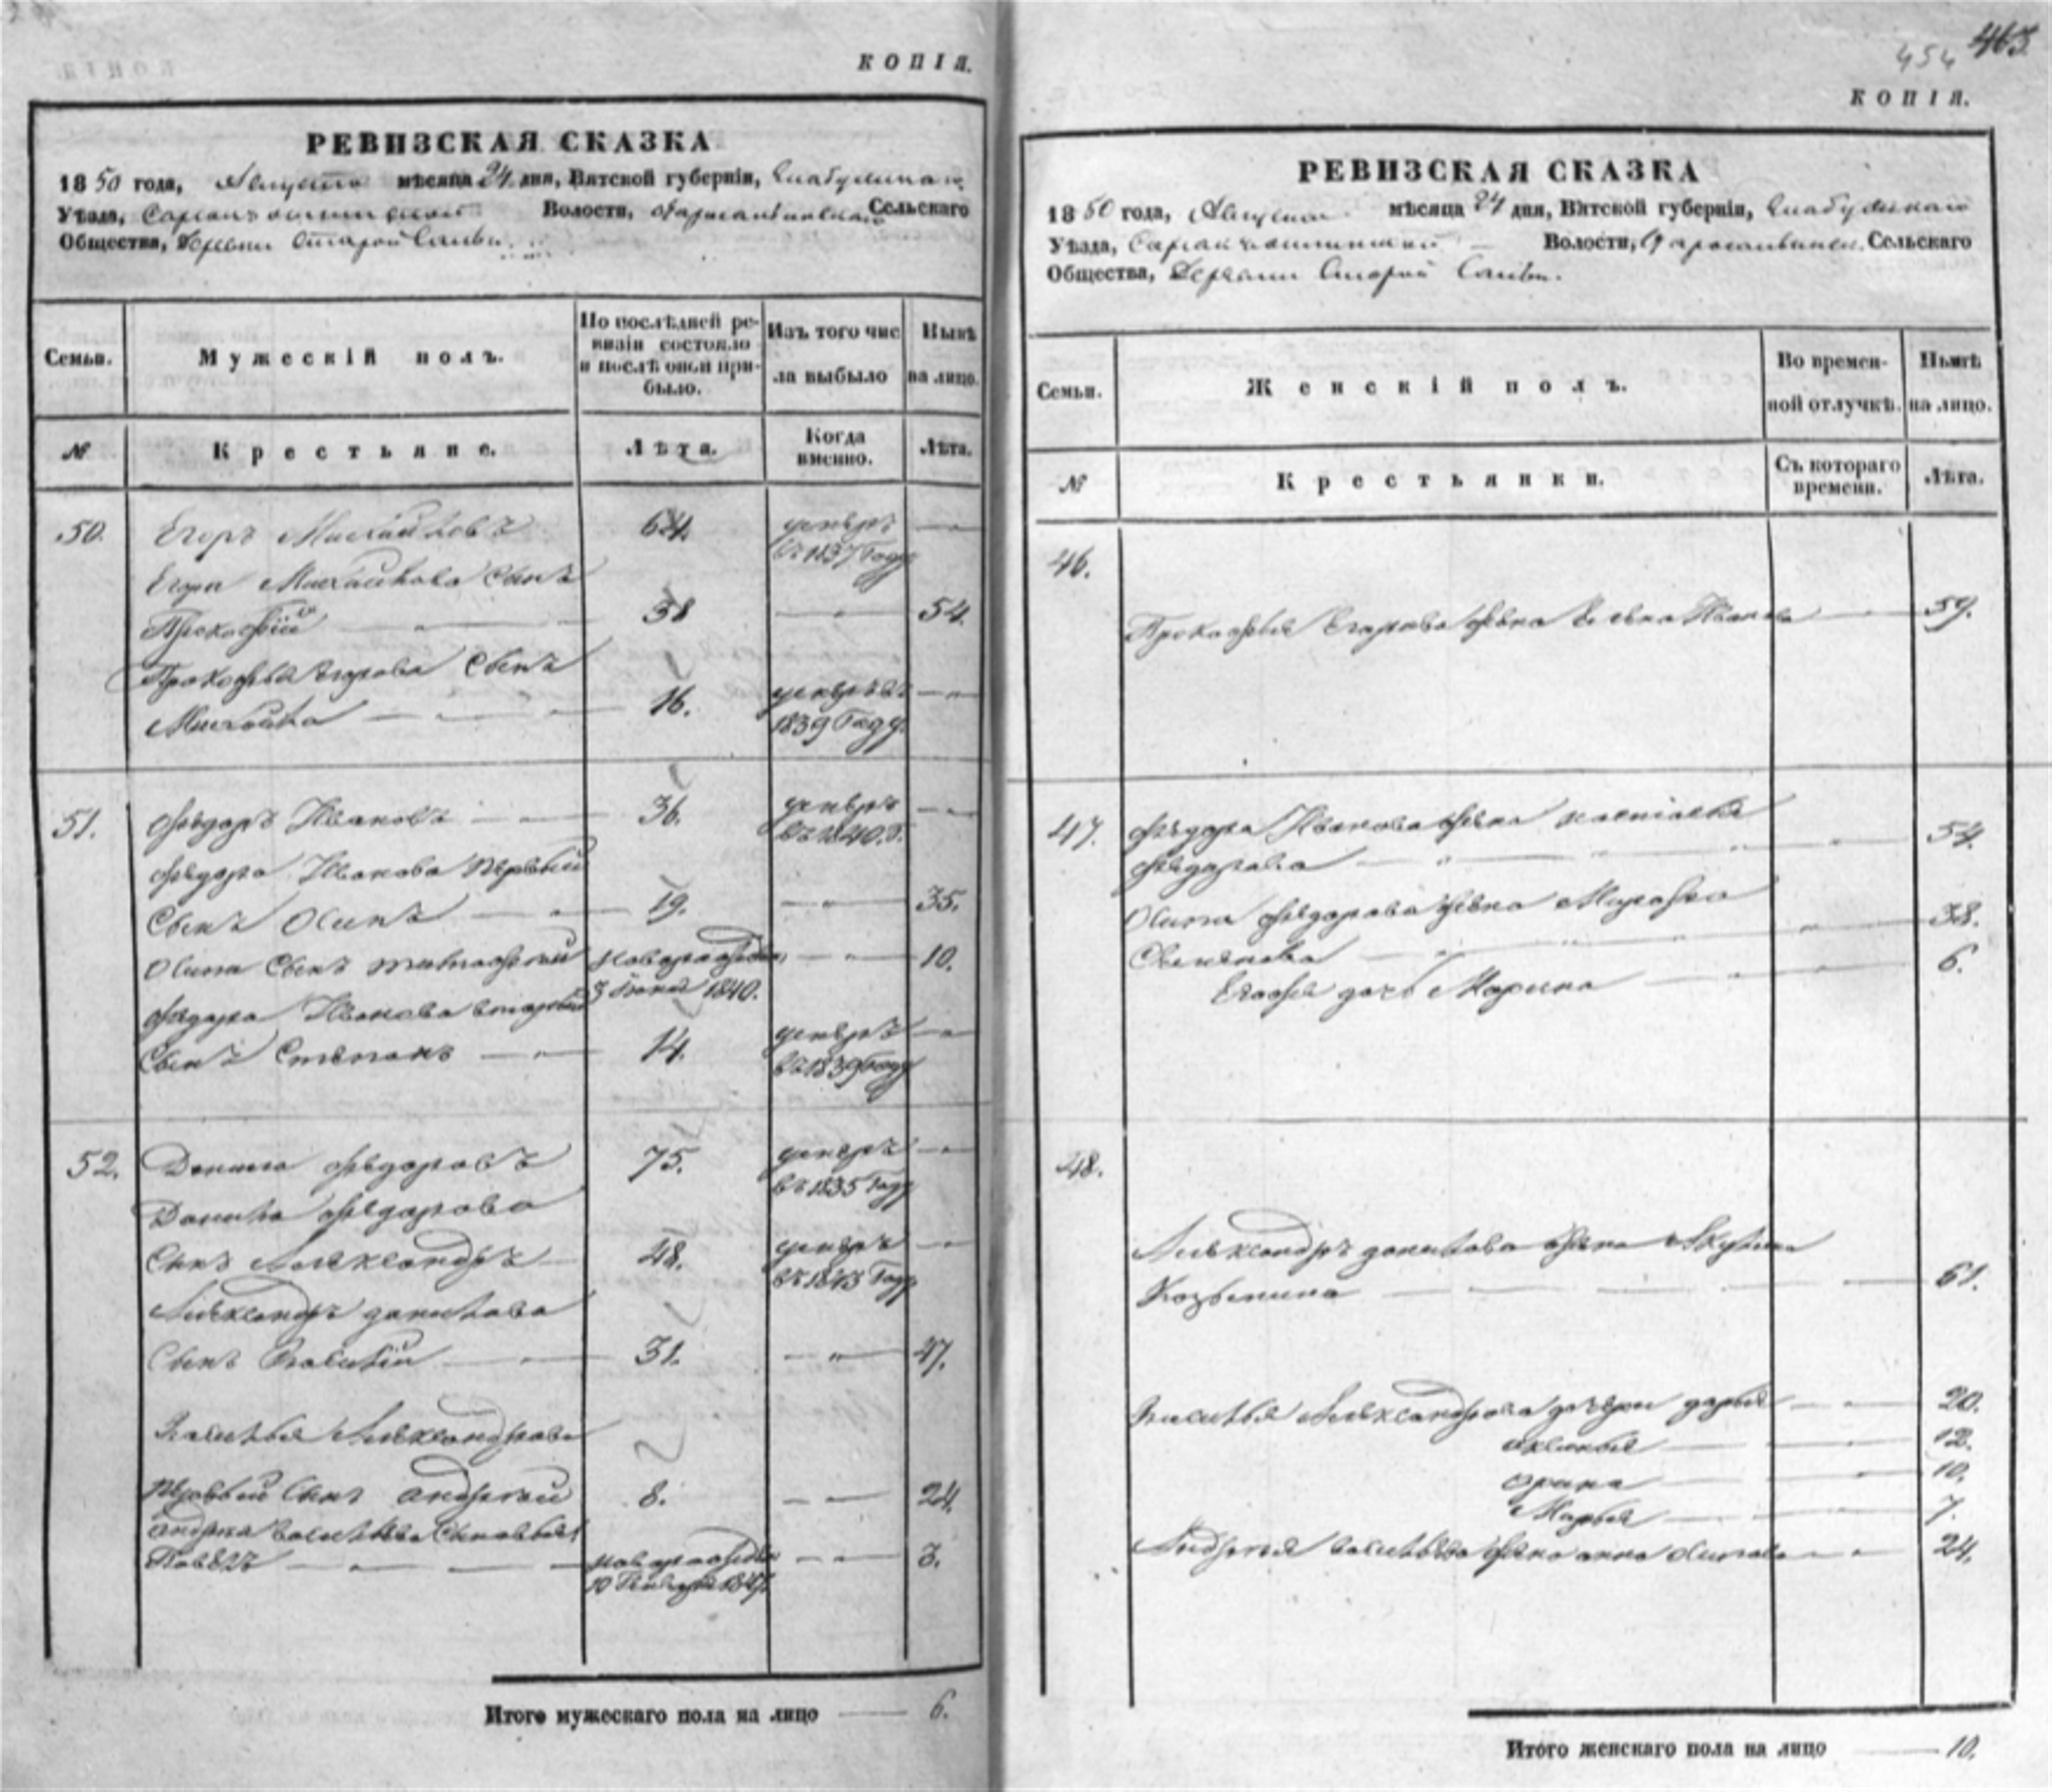 КОПІЯ.
РЕВИЗСКАЯ СКАЗКА
1850 года, Августа мѣсяца 24 дня, Вятской губерніи, Елабужскаго
Уѣзда, Волости, Сельскаго
Общества, Деревни Старой
Семьи.
Мужескій полъ.
По послѣдней ре-
визіи состояло
и послѣ онои при-
было.
Изъ того чис
ла выбыло
Нынѣ
на лицо.
№
Крестьяне.
Лѣта.
Когда
именно.
Лѣта.
50. Егоръ Михайловъ 64. умеръ —
въ 1837 Году
Егора Михайлова Сынъ
Прокофій 38 — 54.
Прокофья Егорова Сынъ
Михайла 16. умеръ въ —
1839 Году.
51. Федоръ Ивановъ 36. умеръ —
въ 1840. г.
Федора Иванова первый
Сынъ Осипъ 19. — 35.
Осипа Сынъ Тимофей новорожден — 10.
3 1840.
Федора Иванова вторый
Сынъ Степанъ 14. умеръ —
въ 1839 Году
52. Данила Федоровъ 75. умеръ —
въ 1835 Году
Данила Федорова
Сынъ Александръ 48. умеръ —
въ 1843 Году
Александръ данилова
Сынъ Василій 31. — 47.
Василья Александрова
первый Сынъ андрей 8. — 24.
андрея васильева Сыновья
Павелъ новорожден — 3.
10 Генваря 1847.
Итого мужескаго пола на лицо — 6.
454 463
КОПІЯ.
РЕВИЗСКАЯ СКАЗКА
1850 года, Августа мѣсяца 24 дня, Вятской губерніи, Елабужскаго
Уѣзда, Волости, Сельскаго
Общества, Деревни Старой
Семьи.
Женскій полъ.
Во времен-
ной отлучкѣ.
Нынѣ
на лицо.
№
Крестьянки.
Съ котораго
времени.
Лѣта.
46.
Прокофья Егорова жена Елена Иванова — 59.
47. Федора Иванова жена
Федорова — 54.
Осипа Федорова жена 38.
Семенова
Егофья дочь Марина — 6.
48.
Александръ данилова жена Акулина
Козьмина — 61.
Василья Александрова дочери дарья — 20.
аксинья — 12.
орина — 10.
Марья — 7.
Андрея васильева жена анна Осипова — 24.
Итого женскаго пола на лицо — 10.